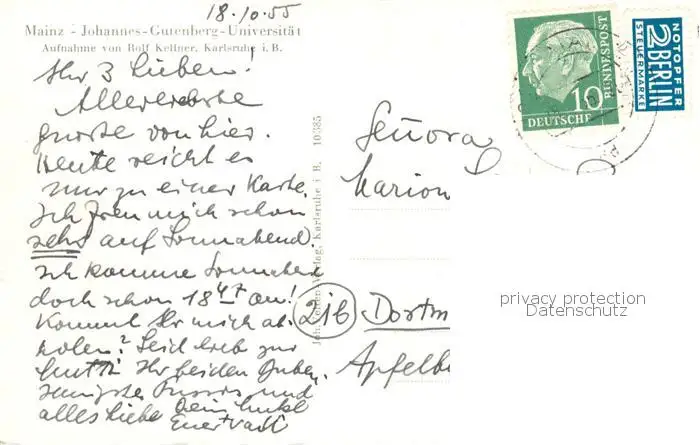 18.10.55
Mainz - Johannes-Gutenberg-Universität
Aufnahme von Rolf Kellner, Karlsruhe i. B.
Ihr 3 Lieben!
Allerherzlichste
Grüsse von hier.
Heute reicht es
nur zu einer Karte.
Ich freu mich schon
sehr auf Sonnabend.
Ich komme Sonnabend
doch schon 18 47 an!
Kommt Ihr mich ab-
holen? Seid lieb zur
Mutti Ihr beiden Guten.
Innigste Bussis und
alles Liebe
Euer Vati
Verlag, Karlsruhe i. B. 10385
BUNDESPOST
10
DEUTSCHE
NOTOPFER
2 BERLIN
STEUERMARKE
Señora
Marion
21b Dortm
Apfelb
privacy protection
Datenschutz